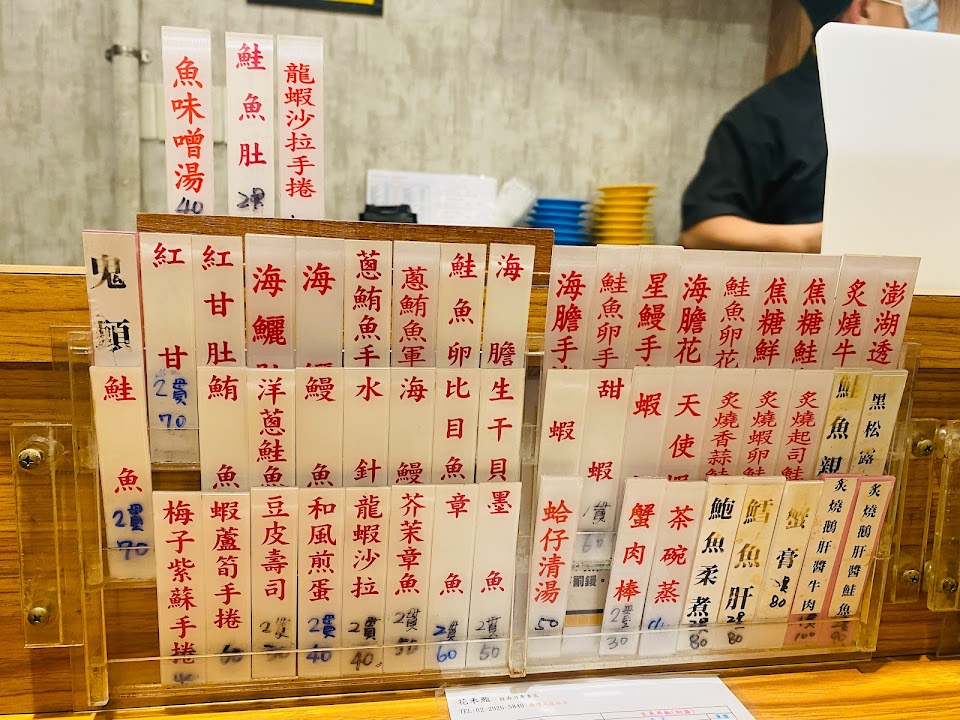 魚味噌湯 40
鮭魚肚 2貫
龍蝦沙拉手捲
鬼頭
紅甘 2貫 70
紅甘肚
海鱺
海
蔥鮪魚手
蔥鮪魚軍
鮭魚卵
海膽
海膽手
鮭魚卵手
星鰻手
海膽花
鮭魚卵花
焦糖鮮
焦糖鮭
炙燒牛
澎湖透
鮭魚 2貫 70
鮪魚
洋蔥鮭魚
鰻魚
水針
海鰻
比目魚
生干貝
甜蝦
蝦 1貫 60
蝦
天使
炙燒香蒜
炙燒蝦卵
炙燒起司鮭
鮭魚親
黑松露
梅子紫蘇手捲 40
蝦蘆筍手捲 60
豆皮壽司 2貫
和風煎蛋 2貫 40
龍蝦沙拉 2貫 40
芥茉章魚 2貫 50
章魚 2貫 60
墨魚 2貫 50
蛤仔清湯 50
蟹肉棒 2貫 30
茶碗蒸
鮑魚柔煮 2貫 80
鱈魚肝 2貫 80
蟹膏 2貫 80
炙燒鵝肝醬牛肉 100
炙燒鵝肝醬鮭魚 90
花禾鮨
TEL:02-2926-5840